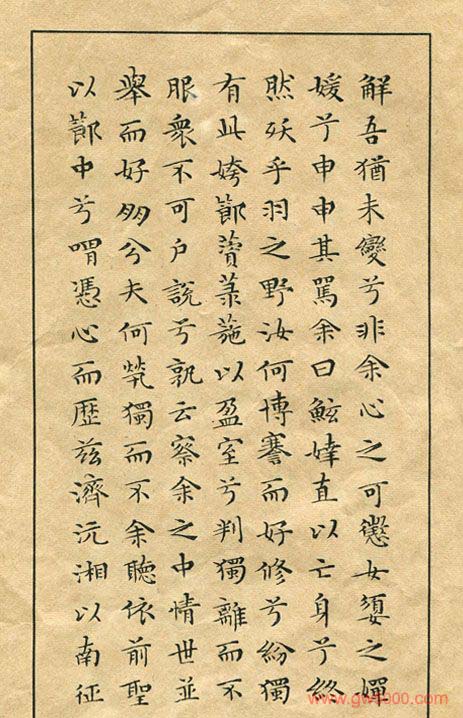 解吾猶未變兮非余心之可懲女媭之嬋
媛兮申申其罵余曰鮌婞直以亡身兮終
然殀乎羽之野汝何博謇而好修兮紛獨
有此姱節薋菉葹以盈室兮判獨離而不
服衆不可戶說兮孰云察余之中情世並
舉而好朋兮夫何煢獨而不余聽依前聖
以節中兮喟憑心而歷茲濟沅湘以南征
www.gws000.com